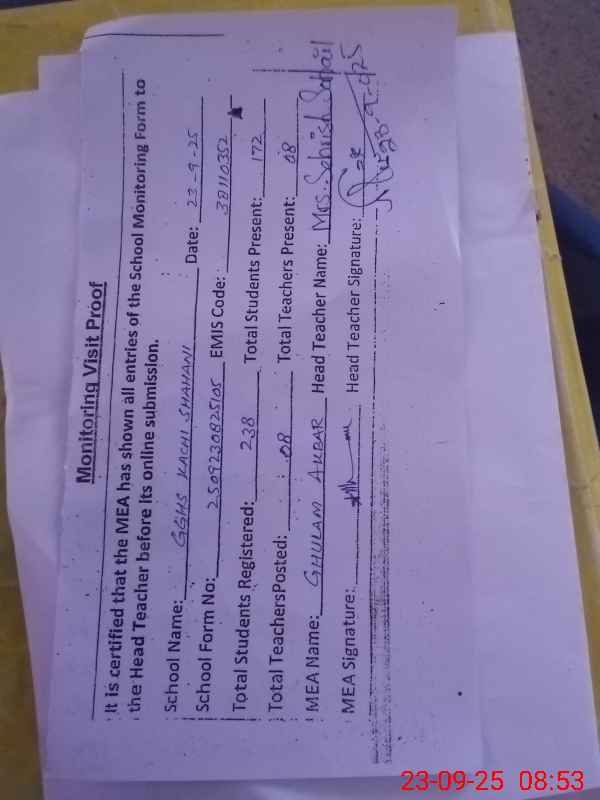 Monitoring Visit Proof
It is certified that the MEA has shown all entries of the School Monitoring Form to
the Head Teacher before its online submission.
School Name: GGHS KACHI SHAHANI Date: 23-9-25
School Form No: 2509230825105 EMIS Code: 38110352
Total Students Registered: 238 Total Students Present: 172
Total TeachersPosted: 08 Total Teachers Present: 08
MEA Name: GHULAM AKBAR Head Teacher Name: Mrs. Sehrish Sohail
MEA Signature: Head Teacher Signature:
23-9-025
23-09-25 08:53